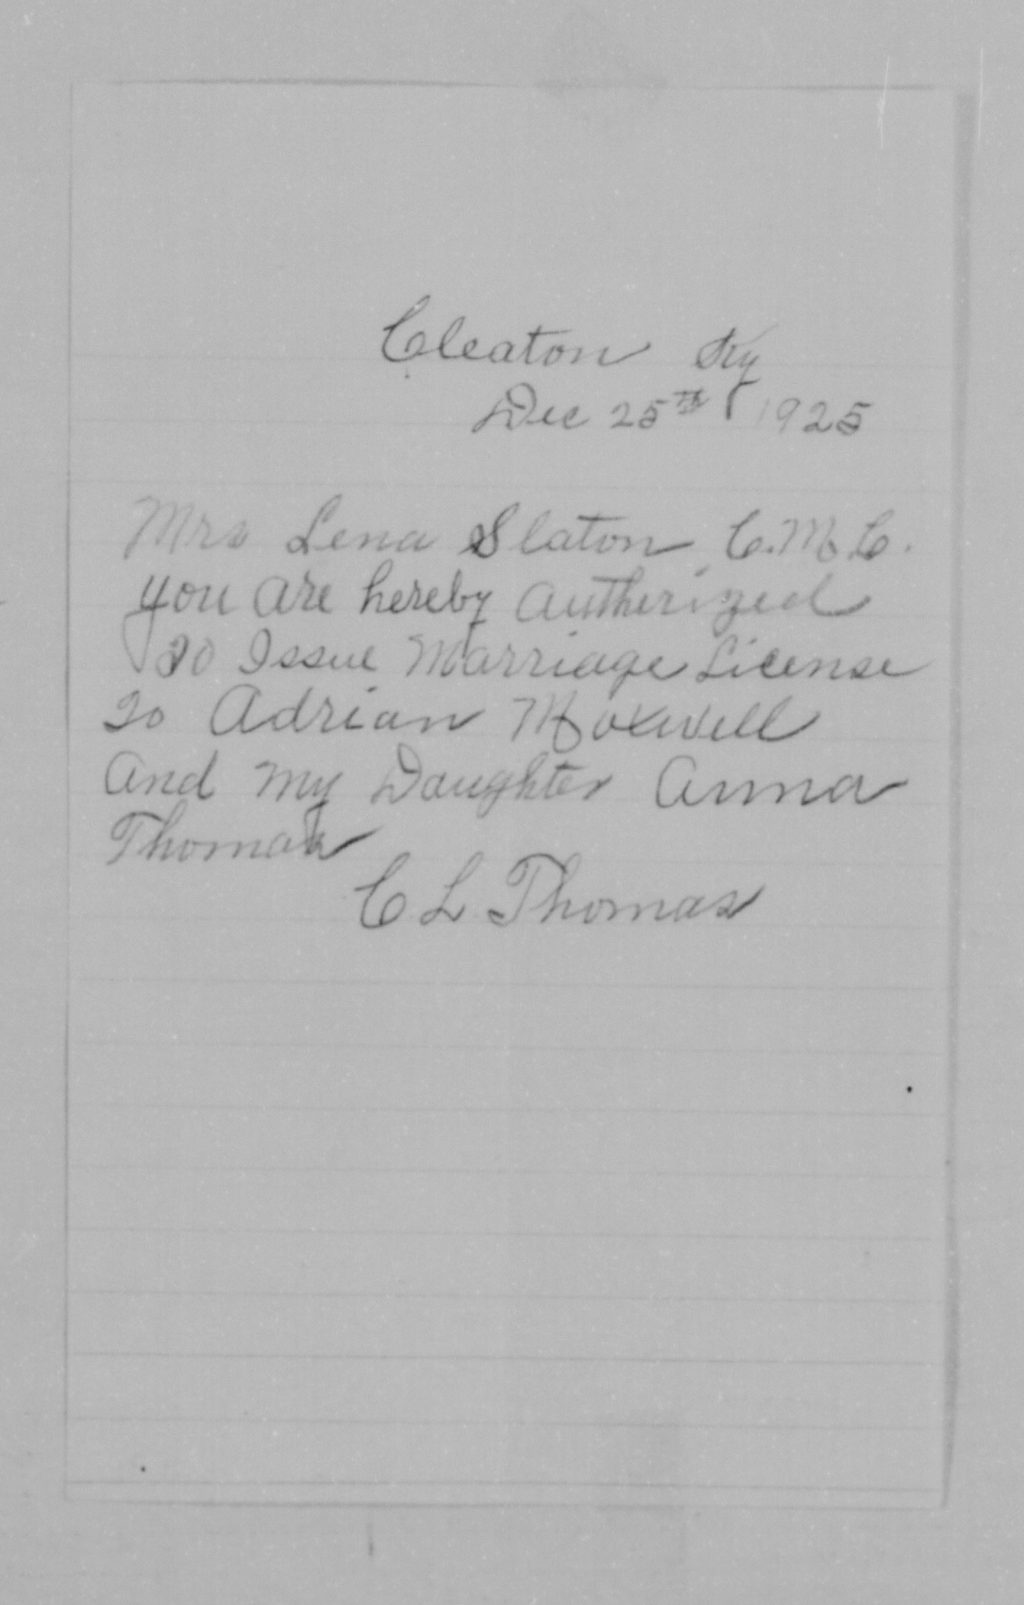 Cleaton Ky
Dec 25th 1925
Mrs Lena Slaton C.M.C.
you are hereby Autherized
To Issue Marriage License
To Adrian Moxwell
And My Daughter Anna
Thomas
C L Thomas